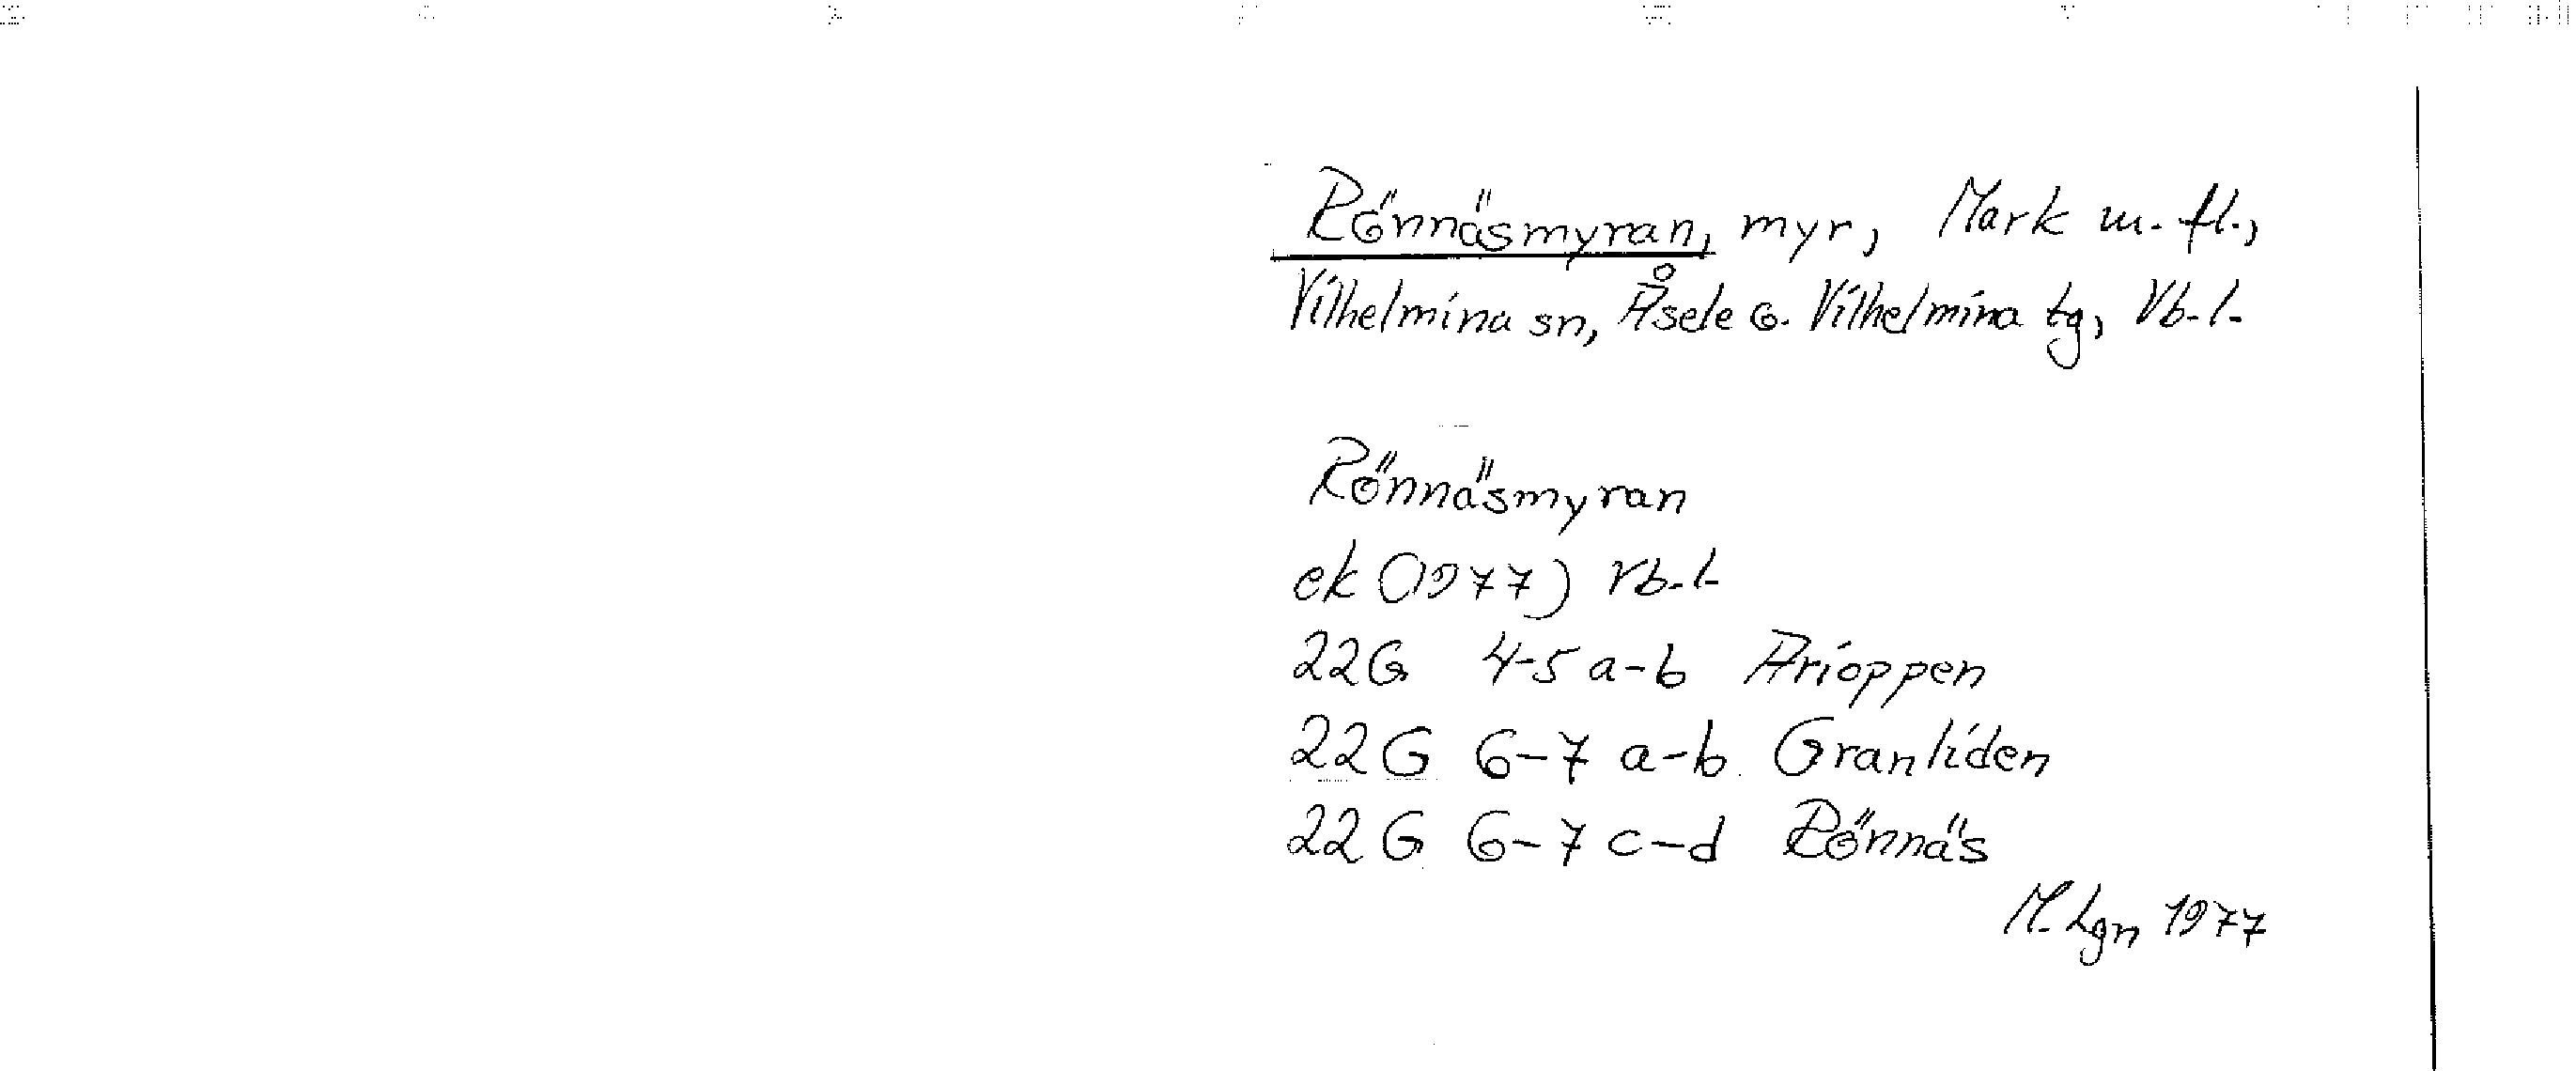 Rönnäsmyran, myr, Mark m. fl.,
Vilhelmina sn, Åsele o. Vilhelmina tg, Vb. l.
Rönnäsmyran
ek (1977) Vb. l.
22G 4-5 a-b Arioppen
22G 6-7 a-b Granliden
22G 6-7 c-d Rönnäs
M. Lgn 1977